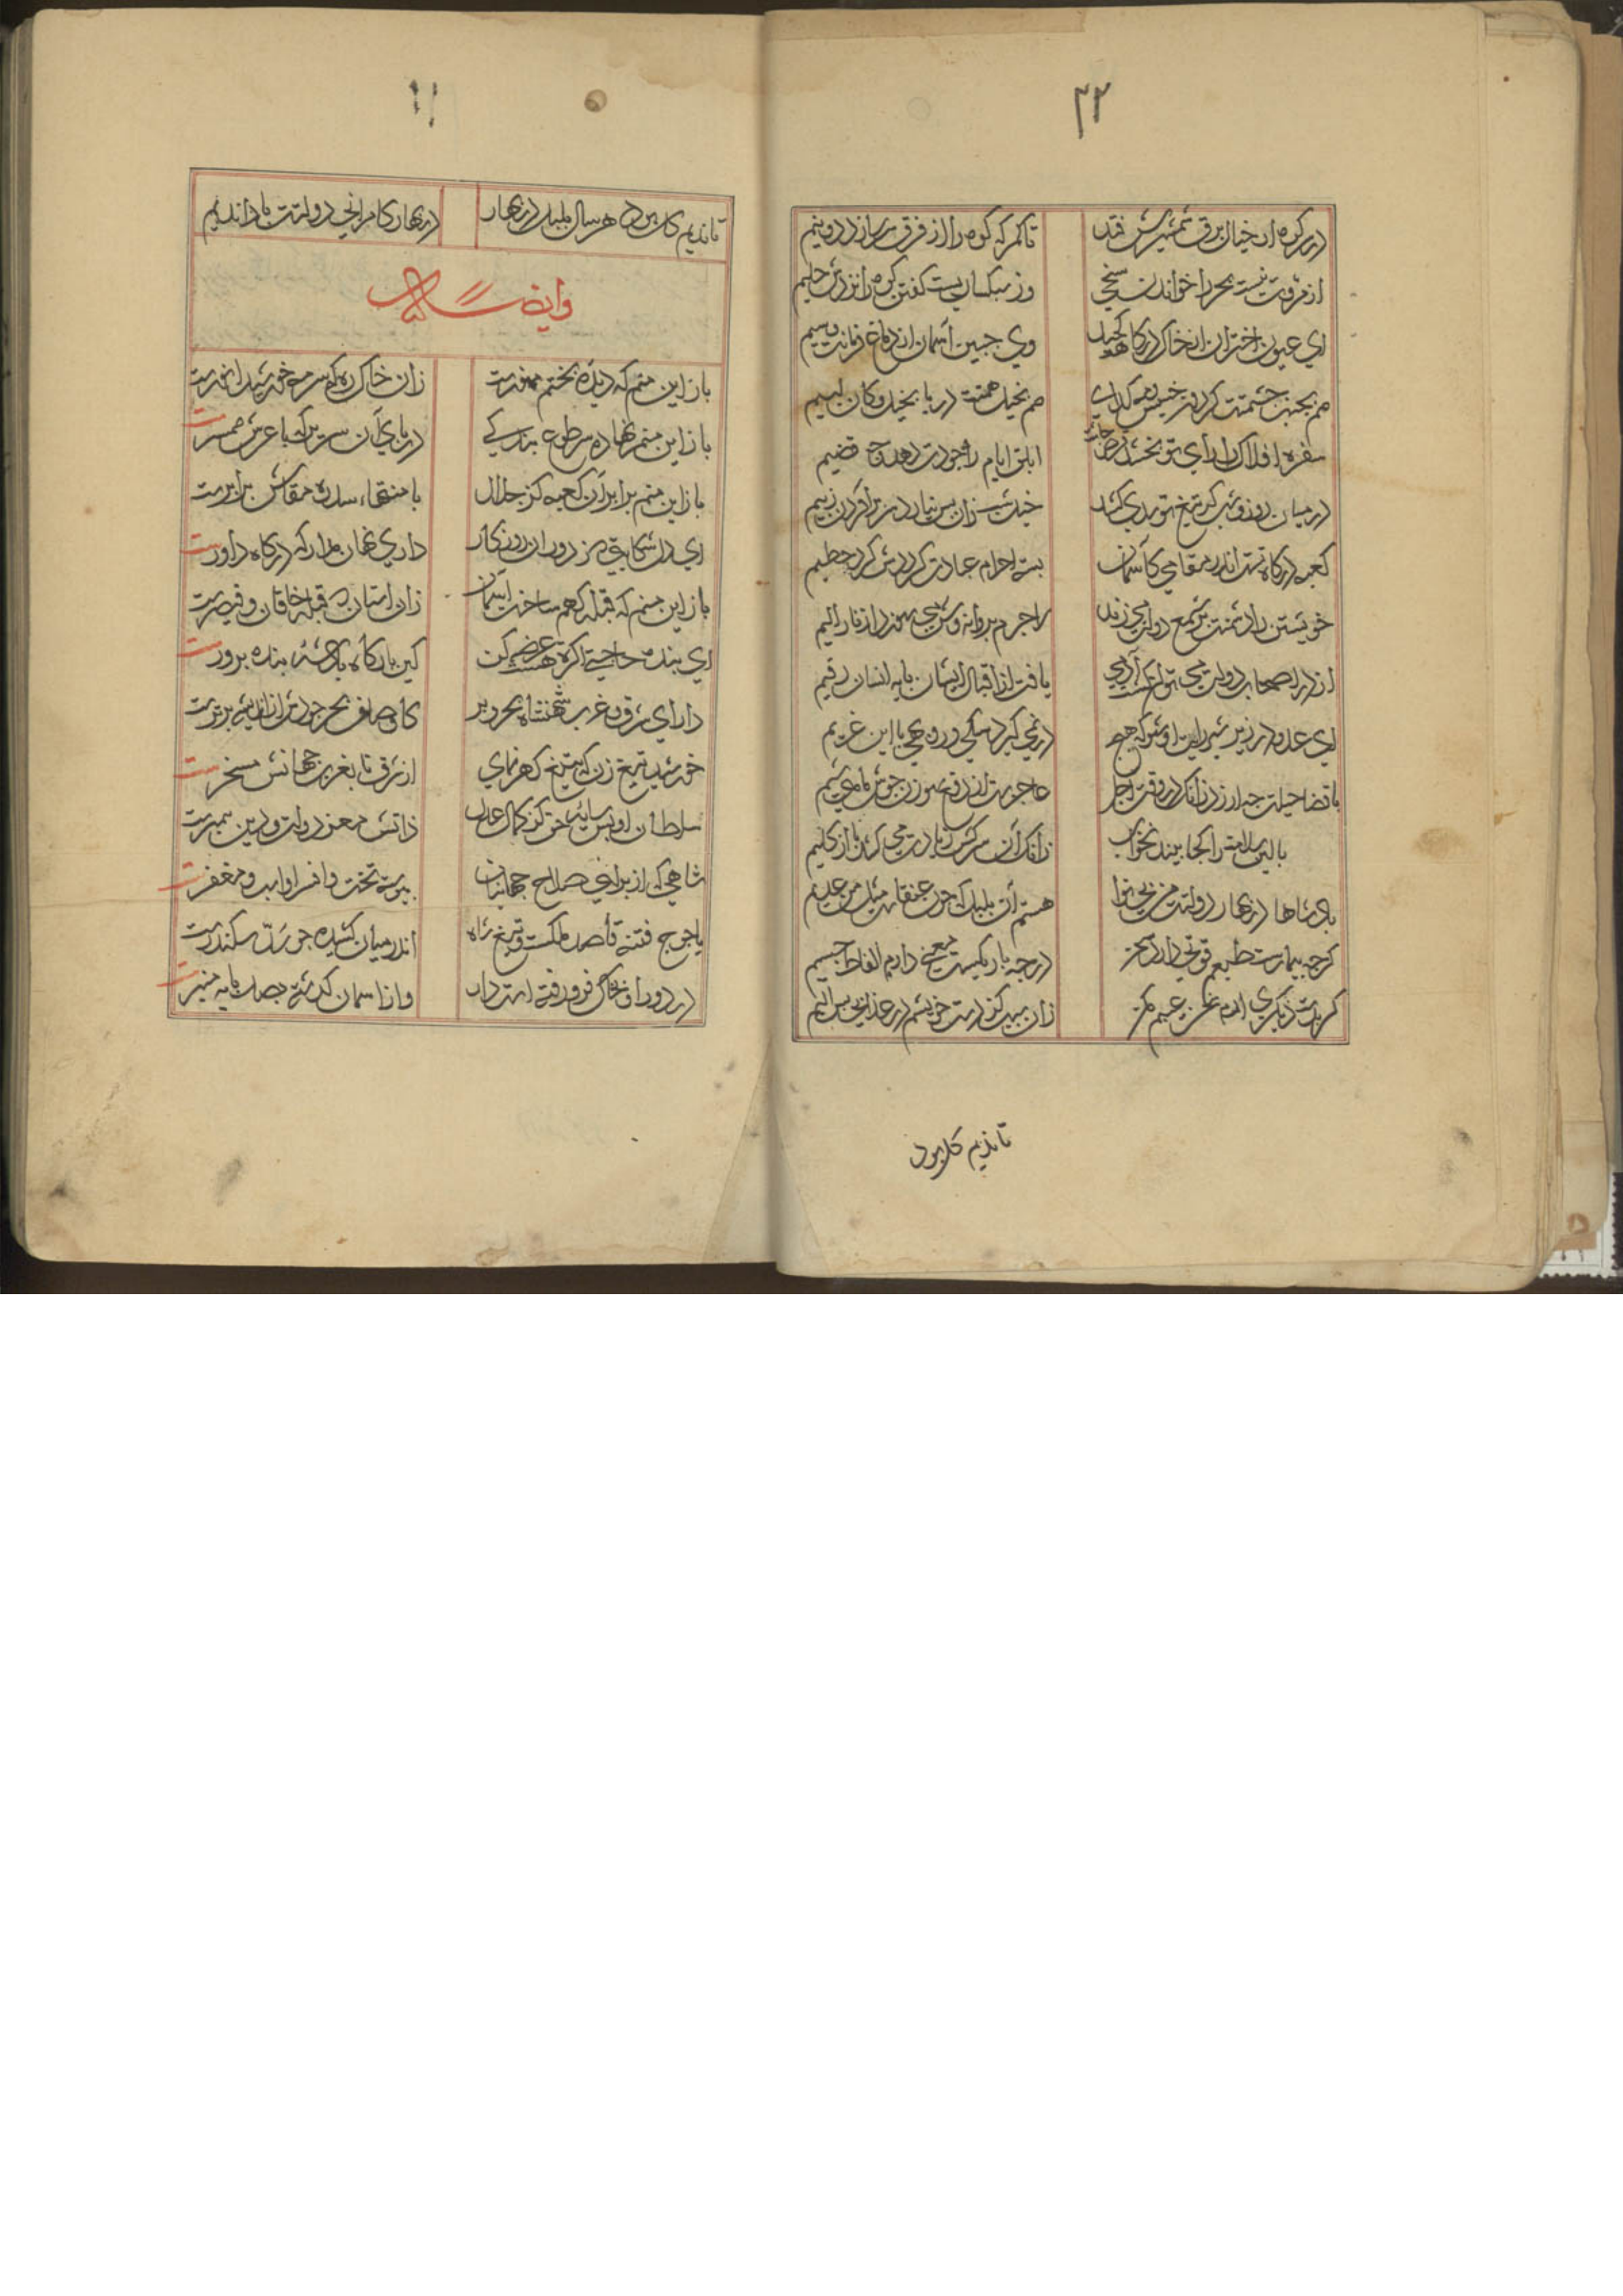 ۳۲
در کوه ار خیال برق شمشیرش فتد
تا کمر که کوه را از فرق سر سازد دو نیم
از مروت نیست بحر را خواندن سخی
وز سبکساریست گفتن کوه را نزدش حلیم
ای عیون اختران از خاک درگاهت کحیل
وی جبین آسمان از داغ فرمانت وسیم
هم بجنب حشمتت گردون خسیس همت گدای
هم بخیل همتت دریا بخیل و کان لئیم
سفره افلاک را رای تو بخشد قرص
ابلق ایام را جودت دهد جو قضیم
در میان روز و شب گر تیغ تو حدی کشد
خیل شب زان پس نیارد در بر آوردن ز بیم
کعبه درگاه تست اندر مقامی کآسمان
بسته احرام عبادت گرد در گرد حطیم
خویشتن را دشمنت بر شمع دولت می‌زند
لاجرم پروانه‌وش می‌سوزد از نار الیم
از در اصحاب دولت می‌توان گشت آدمی
یافت از اقبال ایشان پایه انسان رقیم
ای عدو در زیر شیر رایت او شو که هیچ
در نمی‌گیرد سگی و روبهی با این غریم
با قضا حیلت چه ارزد زانکه در وقت اجل
عاجزست از دفع سوزن جوش ماهی شیم
بالین سلامت را کجا بیند بخواب
زانکه آن سرکش زیادت می‌کند پا از گلیم
پادشاها در بهار دولتت من بی‌نوا
هستم آن بلبل که چون عنقاست مثل من عدیم
گرچه بیمارست طبعم قوتی دارد سخن
در چه باریکیست معنی دارم الفاظ جسیم
گر بدست دیگری آدم سخن عیبم مکن
زان سبب کز دست خویشم در عذابی بس الیم
تا ندیم گل بود
تا ندیم گل بود هر سال بلبل در بهار
در بهار کامرانی دولتت بادا ندیم
وایضا له
باز این منم که دیده بختم منورست
زان خاک ره که سرمه خورشید انورست
باز این منم نهاده سر طوع بندگی
در پای آن سریر که با عرش همسرست
باز این منم برابر آن کعبه کز جلال
با منتهاء سدره مقامش برابرست
ای دل شکایتی ز دوران روزگار
داری نهان مدار که درگاه داورست
باز این منم که قبله گهم ساخت آسمان
زان آستان که قبله خاقان و قیصرست
ای بنده حاجتی اگرت هست عرضه کن
کین بارگاه پادشه بنده پرورست
دارای شرق و غرب شهنشاه بحر و بر
کاوصاف بحر جودش از اندیشه برترست
خورشید تیغ زن که بتیغ گهر نمای
از شرق تا بغرب جهانش مسخرست
سلطان اویس سایه حق کز کمال عدل
ذاتش معز دولت و دین پیمبرست
شاهی که از برای صلاح جهانیان
پیوسته تخت و افسر او اسب و مغفرست
یاجوج فتنه قاصد ملکست و تیغ شاه
اندر میان کشیده چو سد سکندرست
در دور او بخاک فرو رفته است دار
واز آسمان گذشته بصد پایه منبرست